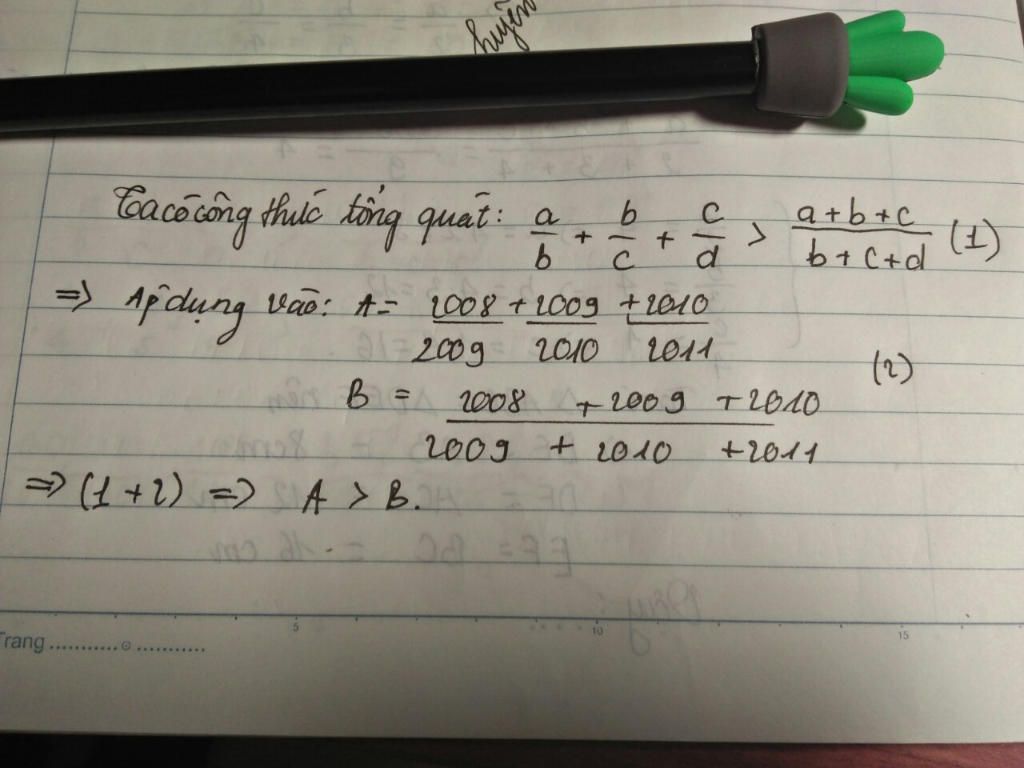 huyền
Ta có công thức tổng quát: a/b + b/c + c/d > (a+b+c)/(b+c+d) (1)
=> Áp dụng vào: A = 2008/2009 + 2009/2010 + 2010/2011
B = (2008 + 2009 + 2010)/(2009 + 2010 + 2011) (2)
=> (1+2) => A > B.
5 10 15
Trang